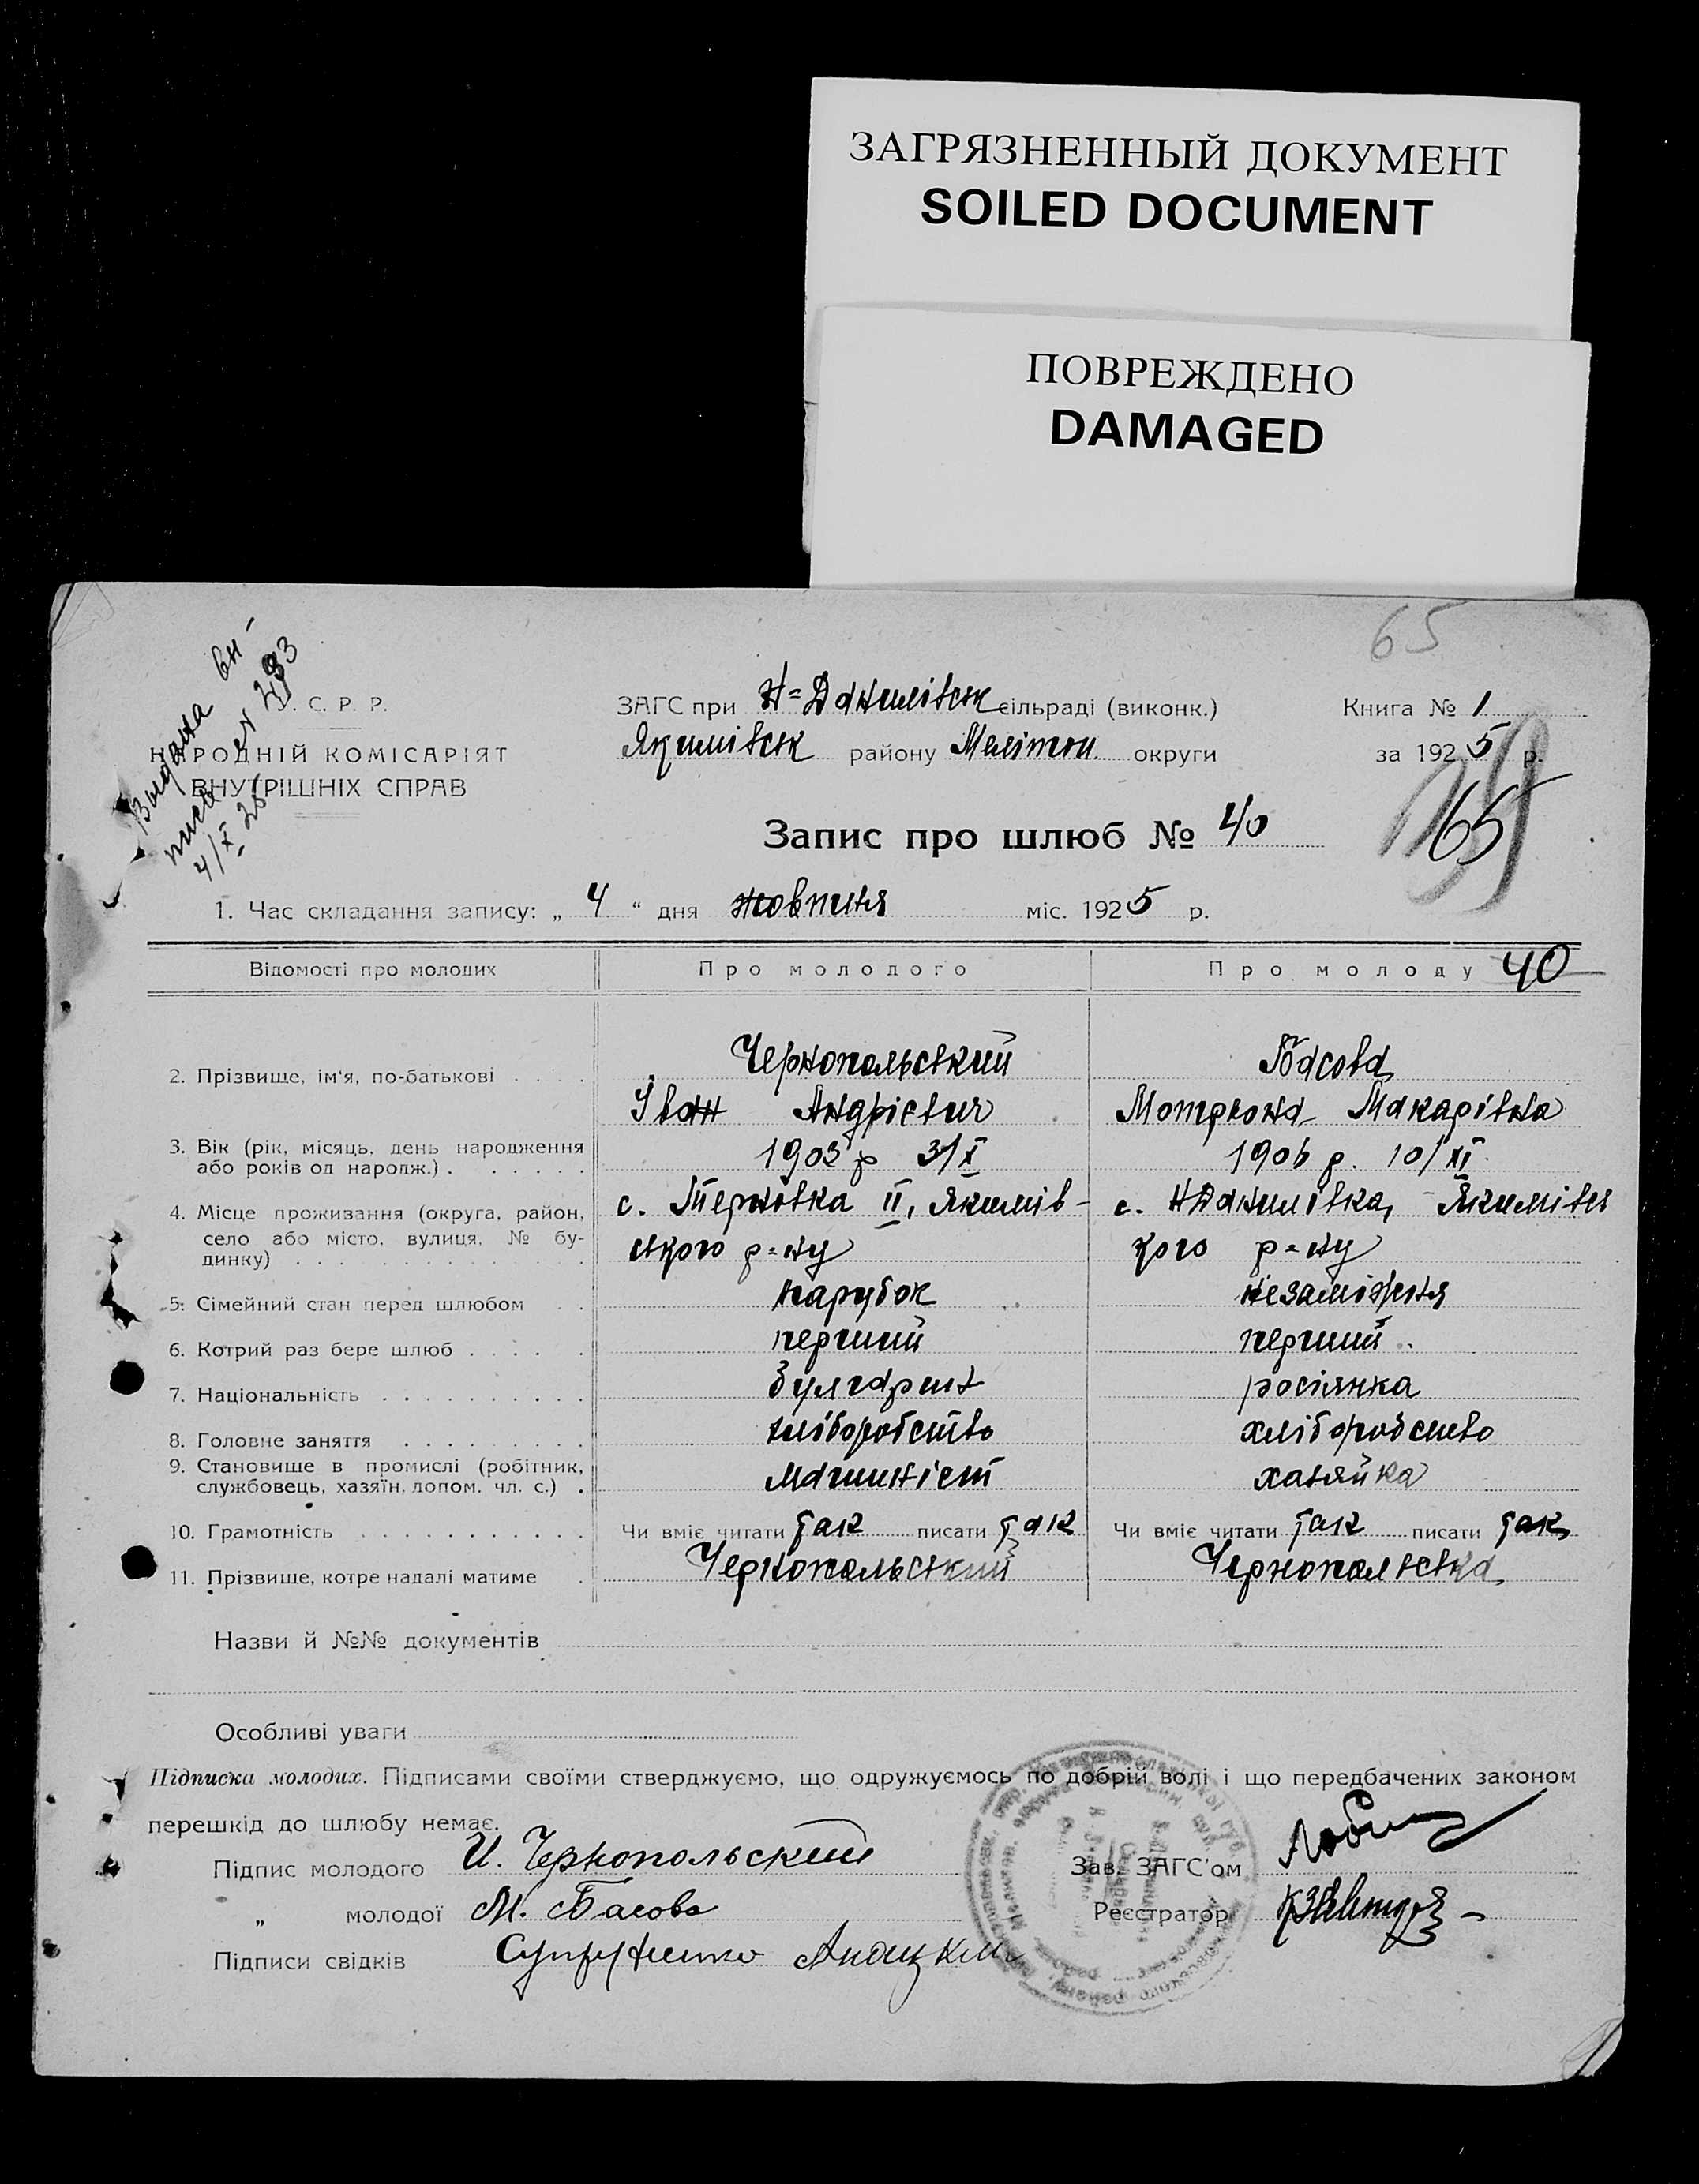 ЗАГРЯЗНЕННЫЙ ДОКУМЕНТ
SOILED DOCUMENT
ПОВРЕЖДЕНО
DAMAGED
65
Выдана вы-
пись 283
4/X 25
У. С. Р. Р.
НАРОДНІЙ КОМІСАРІЯТ
ВНУТРІШНІХ СПРАВ
ЗАГС при Н=Данилівськ сільраді (виконк.)
Якимівськ району Мелітоп округи
Книга № 1
за 1925 р.
Запис про шлюб № 40
65
1. Час складання запису: „ 4 “ дня жовтня міс. 1925 р.
Відомості про молодих
Про молодого
Про молоду 40
2. Прізвище, ім'я, по-батькові . . . .
Чернопольський
Басова
Іван Андрієвич
Мотрона Макарівна
3. Вік (рік, місяць, день народження
або років од народж.) . . . . . .
1903 р 3/X
1906 р. 10/XI
4. Місце проживання (округа, район,
село або місто, вулиця, № бу-
динку) . . . . . . . . . . . . .
с. Тернівка II, Якимів-
ського р=ну
с. НДанилівка, Якимівсь
кого р=ну
5. Сімейний стан перед шлюбом . .
парубок
незаміжня
6. Котрий раз бере шлюб . . . . .
перший
перший
7. Національність . . . . . . . . . .
булгарин
росіянка
8. Головне заняття . . . . . . . . .
хліборобство
хліборобство
9. Становище в промислі (робітник,
службовець, хазяїн, допом. чл. с.) .
машиніст
хазяйка
10. Грамотність . . . . . . . . . .
Чи вміє читати так писати так
Чи вміє читати так писати так
11. Прізвище, котре надалі матиме .
Чернопольський
Чернопольська
Назви й №№ документів
Особливі уваги
Підписка молодих. Підписами своїми стверджуємо, що одружуємось по добрій волі і що передбачених законом
перешкід до шлюбу немає.
Підпис молодого И. Чернопольский
Зав. ЗАГС'ом
„ молодої М. Басова
Реєстратор
Підписи свідків